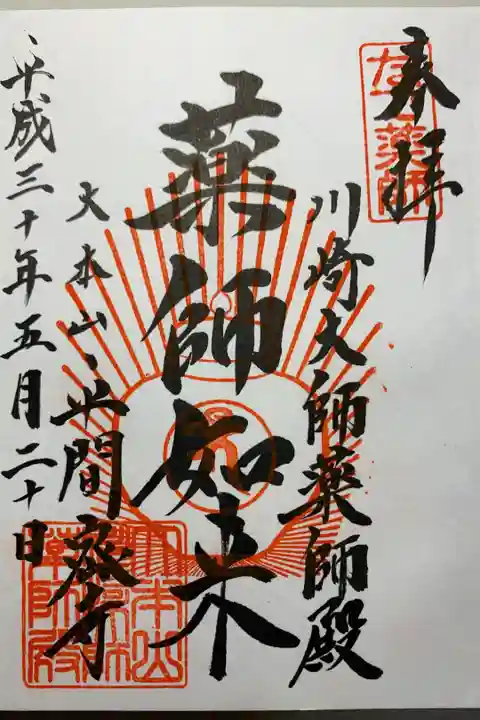 奉拝
川崎大師薬師殿
薬師如来
大本山平間寺
平成三十年五月二十日